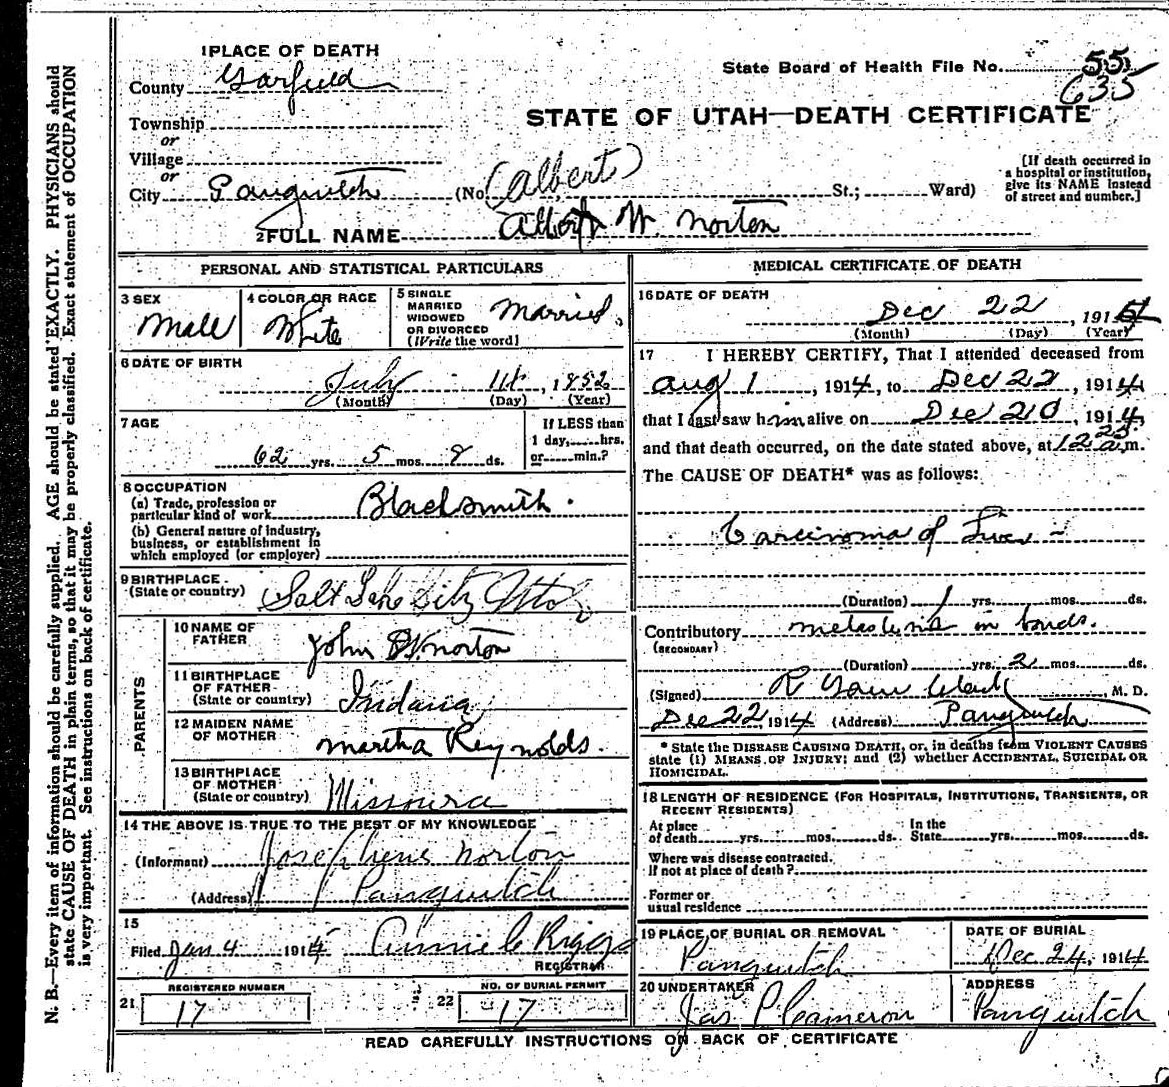 1 PLACE OF DEATH
County Garfield
Township
or
Village
or
City Panguitch (No. (Albert) St.; Ward)
State Board of Health File No. 55
635
STATE OF UTAH—DEATH CERTIFICATE
[If death occurred in
a hospital or institution,
give its NAME instead
of street and number.]
2 FULL NAME Albert W. Norton
PERSONAL AND STATISTICAL PARTICULARS
3 SEX
Male
4 COLOR OR RACE
White
5 SINGLE
MARRIED
WIDOWED
OR DIVORCED
(Write the word)
Married.
6 DATE OF BIRTH
July 14, 1852
(Month) (Day) (Year)
7 AGE
62 yrs. 5 mos. 8 ds.
If LESS than
1 day, hrs.
or min.?
8 OCCUPATION
(a) Trade, profession or
particular kind of work Blacksmith.
(b) General nature of industry,
business, or establishment in
which employed (or employer)
9 BIRTHPLACE
(State or country) Salt Lake City Utah
PARENTS
10 NAME OF
FATHER John W. Norton
11 BIRTHPLACE
OF FATHER
(State or country) Indiana
12 MAIDEN NAME
OF MOTHER Martha Reynolds.
13 BIRTHPLACE
OF MOTHER
(State or country) Missoura
14 THE ABOVE IS TRUE TO THE BEST OF MY KNOWLEDGE
(Informant) Josephene Norton
(Address) Panguitch
15
Filed Jan 4 191 Annie C Riggs
REGISTRAR
21 REGISTERED NUMBER
17
22 NO. OF BURIAL PERMIT
17
MEDICAL CERTIFICATE OF DEATH
16 DATE OF DEATH
Dec 22, 191
(Month) (Day) (Year)
17 I HEREBY CERTIFY, That I attended deceased from
Aug 1, 1914, to Dec 22, 1914,
that I last saw him alive on Dec 20, 1914,
and that death occurred, on the date stated above, at 12 25 a.m.
The CAUSE OF DEATH* was as follows:
Carcinoma of Liver -
(Duration) 1 yrs. mos. ds.
Contributory in
(SECONDARY)
(Duration) yrs. 2 mos. ds.
(Signed) R Clark, M. D.
Dec 22, 1914 (Address) Panguitch
* State the DISEASE CAUSING DEATH, or, in deaths from VIOLENT CAUSES
state (1) MEANS OF INJURY; and (2) whether ACCIDENTAL, SUICIDAL OR
HOMICIDAL.
18 LENGTH OF RESIDENCE (FOR HOSPITALS, INSTITUTIONS, TRANSIENTS, OR
RECENT RESIDENTS)
At place
of death yrs. mos. ds. In the
State yrs. mos. ds.
Where was disease contracted.
If not at place of death?
Former or
usual residence
19 PLACE OF BURIAL OR REMOVAL
Panguitch
DATE OF BURIAL
Dec 24, 1914
20 UNDERTAKER
Jas P Cameron
ADDRESS
Panguitch
READ CAREFULLY INSTRUCTIONS ON BACK OF CERTIFICATE
N. B.—Every item of information should be carefully supplied. AGE should be stated EXACTLY. PHYSICIANS should
state CAUSE OF DEATH in plain terms, so that it may be properly classified. Exact statement of OCCUPATION
is very important. See instructions on back of certificate.